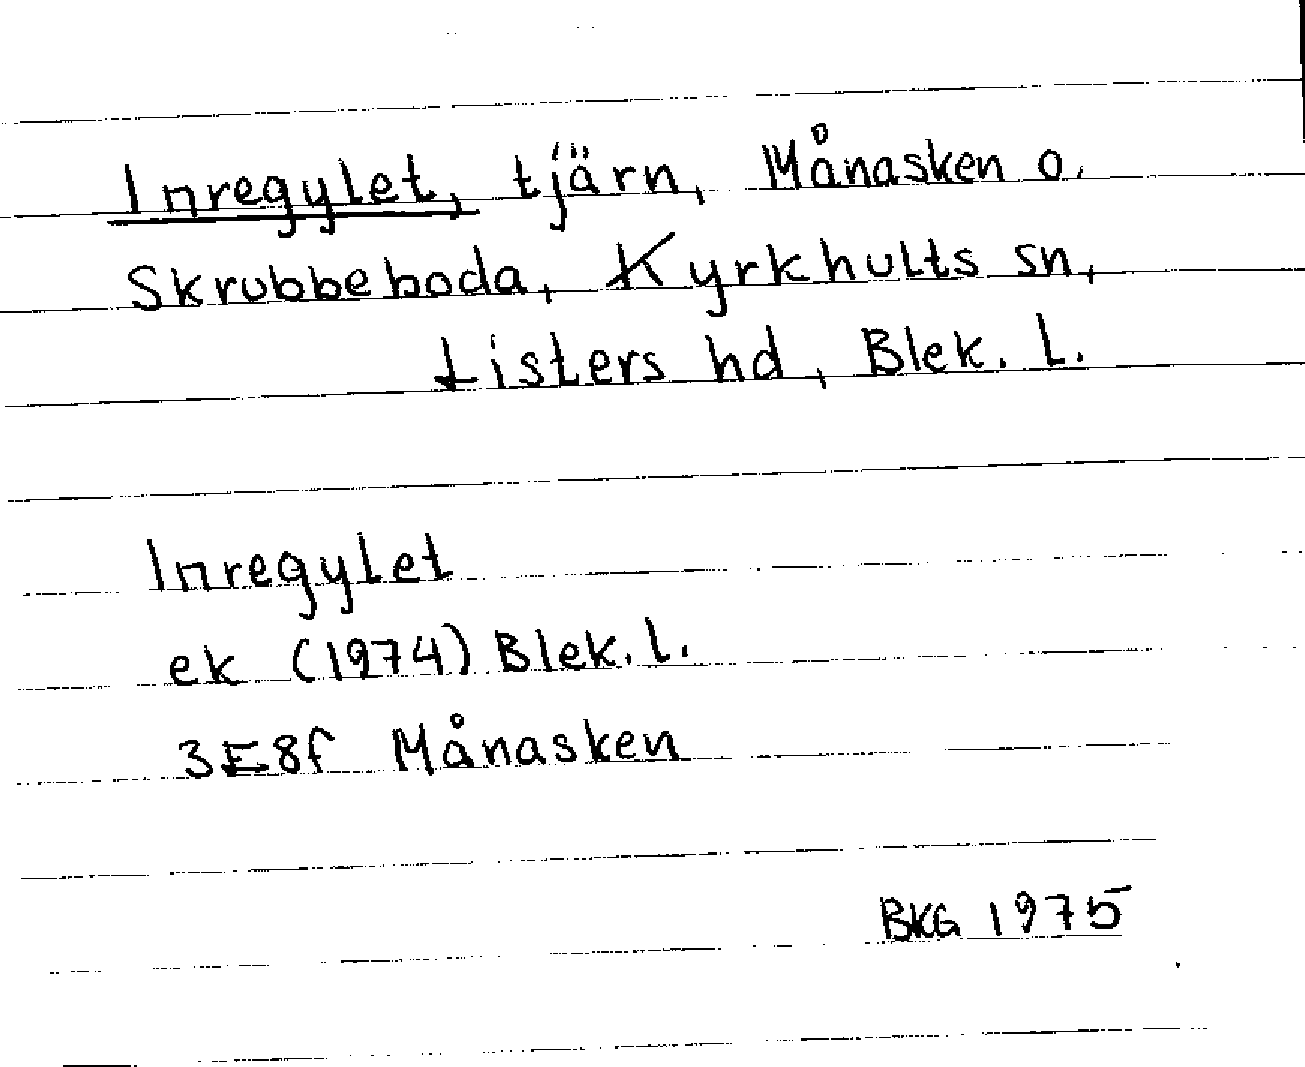 Inregylet, tjärn, Månasken o.
Skrubbeboda, Kyrkhults sn,
Listers hd, Blek. l.
Inregylet
ek (1974) Blek. l.
3E8f Månasken
BKG 1975